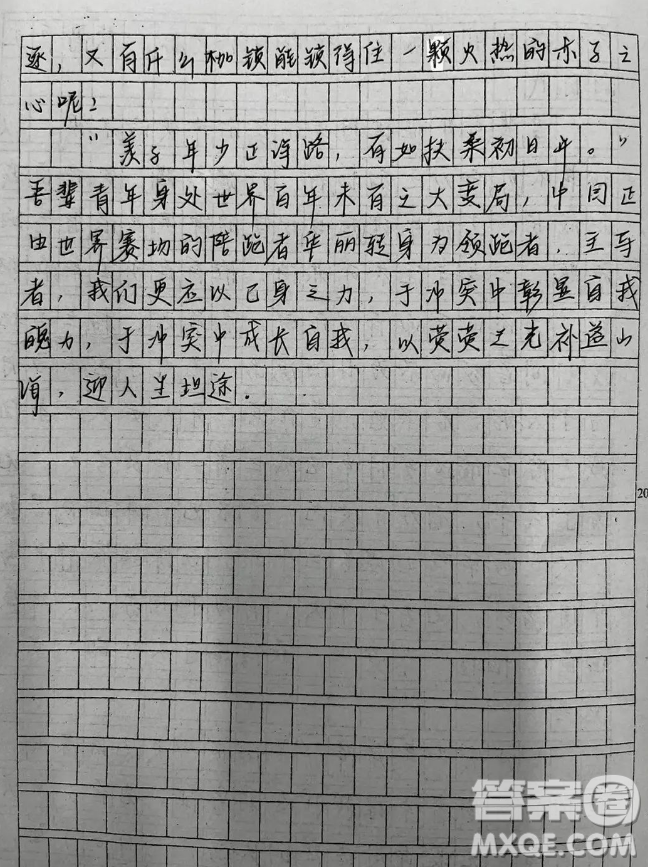 逐，又有什么枷锁能锁得住一颗火热的赤子之
心呢？
“羡子年少正得路，有如扶桑初日升。”
吾辈青年身处世界百年未有之大变局，中国正
由世界赛场的陪跑者华丽转身为领跑者，主导
者，我们更应以己身之力，于冲突中彰显自我
魄力，于冲突中成长自我，以荧荧之光补益山
海，迎人生坦途。
20
答案圈
MXQE.COM